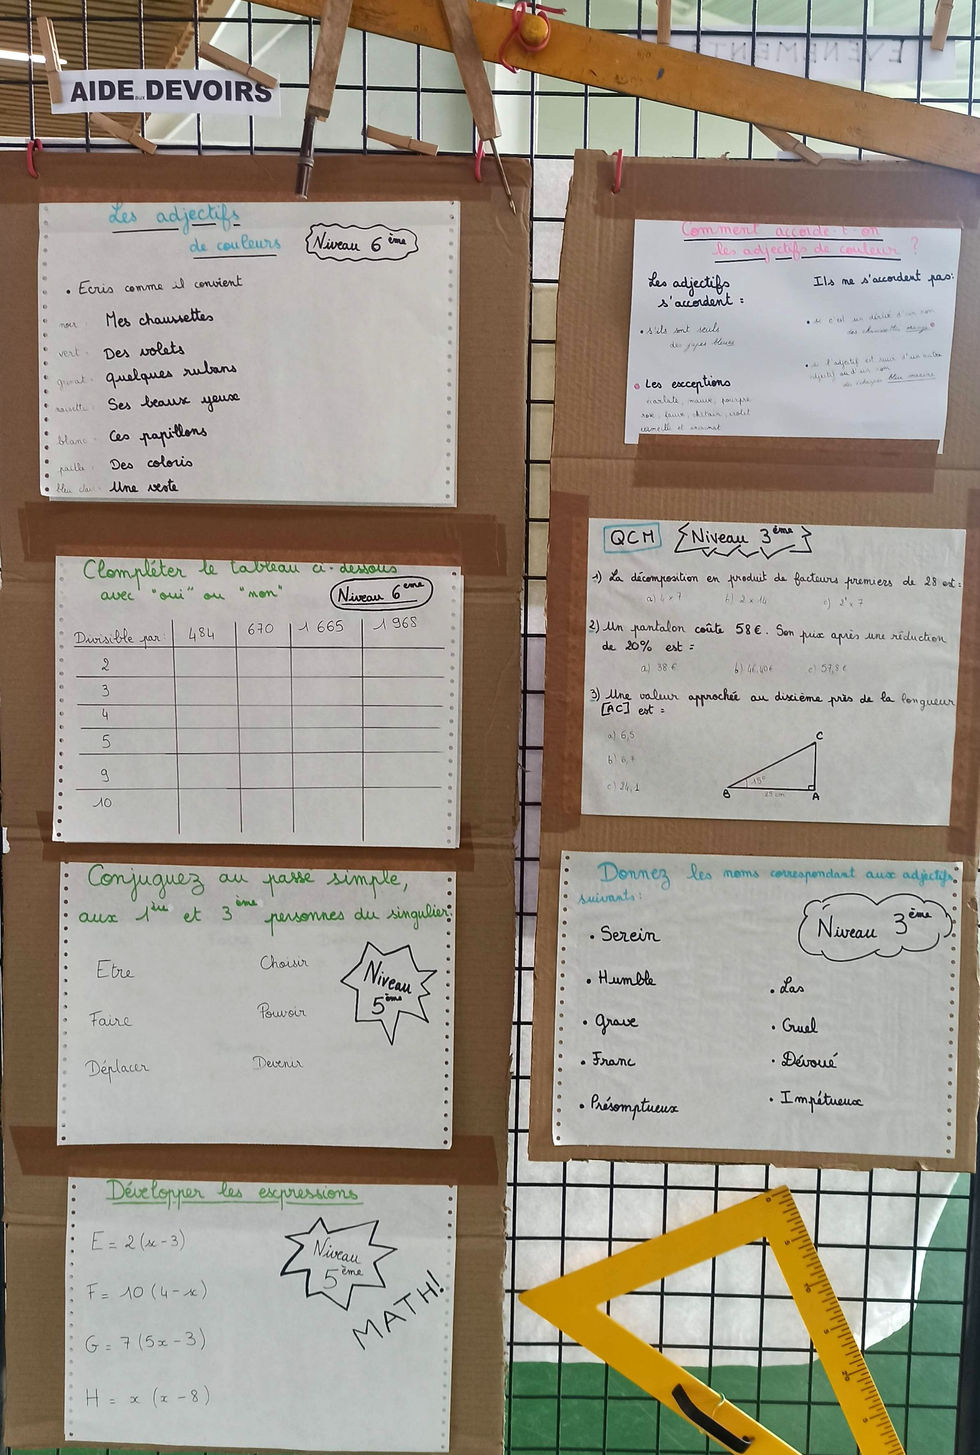 AIDE AUX DEVOIRS
EVÉNEMENT
Les adjectifs
de couleurs
Niveau 6ème
• Ecris comme il convient
noir : Mes chaussettes
vert : Des volets
grenat : Quelques rubans
noisette : Ses beaux yeux
blanc : Ces papillons
paille : Des coloris
bleu clair : Une veste
Compléter le tableau ci-dessous
avec "oui" ou "non"
Niveau 6ème
Divisible par: 484 670 1 665 1 968
2
3
4
5
9
10
Conjuguez au passe simple,
aux 1ère et 3ème personnes du singulier:
Niveau
5ème
Etre Choisir
Faire Pouvoir
Déplacer Devenir
Développer les expressions
Niveau
5ème
MATH!
E = 2(x-3)
F = 10(4-x)
G = 7(5x-3)
H = x (x-8)
Comment accorde-t-on
les adjectifs de couleur ?
Les adjectifs
s'accordent :
• s'ils sont seuls
des jupes bleues
• Les exceptions
écarlate, mauve, pourpre
rose, fauve, châtain, violet
vermeille et incarnat
Ils ne s'accordent pas:
• si c'est un dérivé d'un nom
des chaussettes orange
• si l'adjectif est suivi d'un autre
adjectif ou d'un nom
bleu marine
QCM
Niveau 3ème
1) La décomposition en produit de facteurs premiers de 28 est:
a) 4 x 7 b) 2 x 14 c) 2² x 7
2) Un pantalon coûte 58€. Son prix après une réduction
de 20% est :
a) 38 € b) 46,40€ c) 57,8 €
3) Une valeur approchée au dixième près de la longueur
[AC] est :
a) 6,5
b) 6,7
c) 24,1
C
15°
B
25 cm
A
Donnez les noms correspondant aux adjectifs
suivants:
Niveau 3ème
• Serein
• Humble
• Grave
• Franc
• Présomptueux
• Las
• Cruel
• Dévoué
• Impétueux